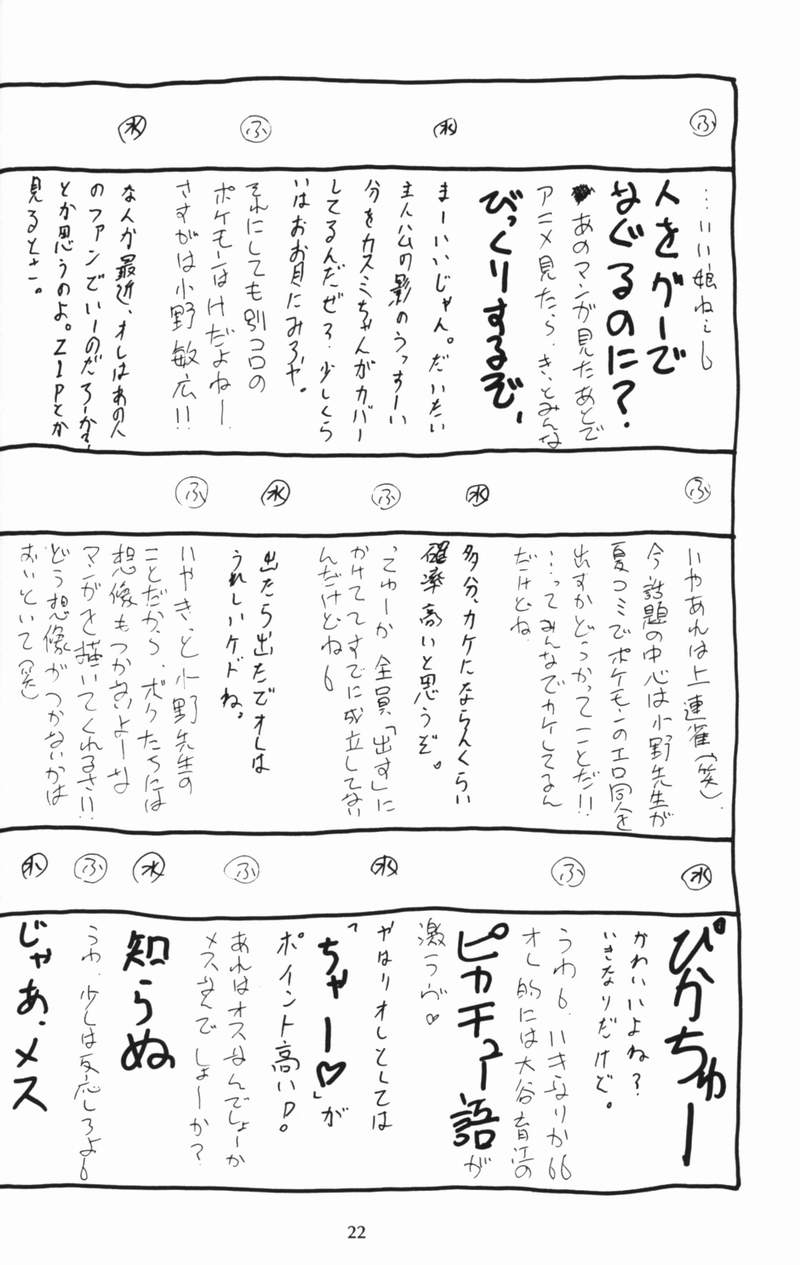 ふ
…いい娘ねぇ6
人をグーで
なぐるのに？
あのマンガ見たあとで
アニメ見たら、きっとみんな
びっくりするぞ、
水
まーいいじゃん。だいたい
主人公の影のうっすーい
分をカスミちゃんがカバー
してるんだぜろ、少しくら
いはお目にみろや。
ふ
それにしても別コロの
ポケモンはけだよねー
さすがは小野敏広!!
水
な人が最近、オレはあの人
のファンでいーのだろーか？
とか思うのよ。ZIPとか
見るとさー。
ふ
いやあれは上連雀(笑)
今話題の中心は小野先生が
夏コミでポケモンのエロ同人を
出すかどうかってことだ!!
…ってみんなでカケしてるん
だけどね
水
多分、カケにならんくらい
確率高いと思うぞ。
ふ
ってゆーか全員「出す」に
かけててすでに成立してない
んだけどね6
水
出たら出たでオレは
うれしいケドね。
ふ
いやきっと小野先生の
ことだから、ボクたちには
想像もつかないよーな
マンガを描いてくれるさ!!
どう想像がつかないかは
おいといて(笑)
水
ぴかちゅー
かわいいよね？
いきなりだけど。
ふ
うわ6、いきなりか66
オレ的には大谷育江の
ピカチュー語が
激ラヴ♡
水
やはりオレとしては
「ちゃー♡」が
ポイント高いD。
ふ
あれはオスなんでしょーか
メスなんでしょーか？
水
知らぬ
ふ
うわ、少しは反応しろよ6
水
じゃあ、メス
22